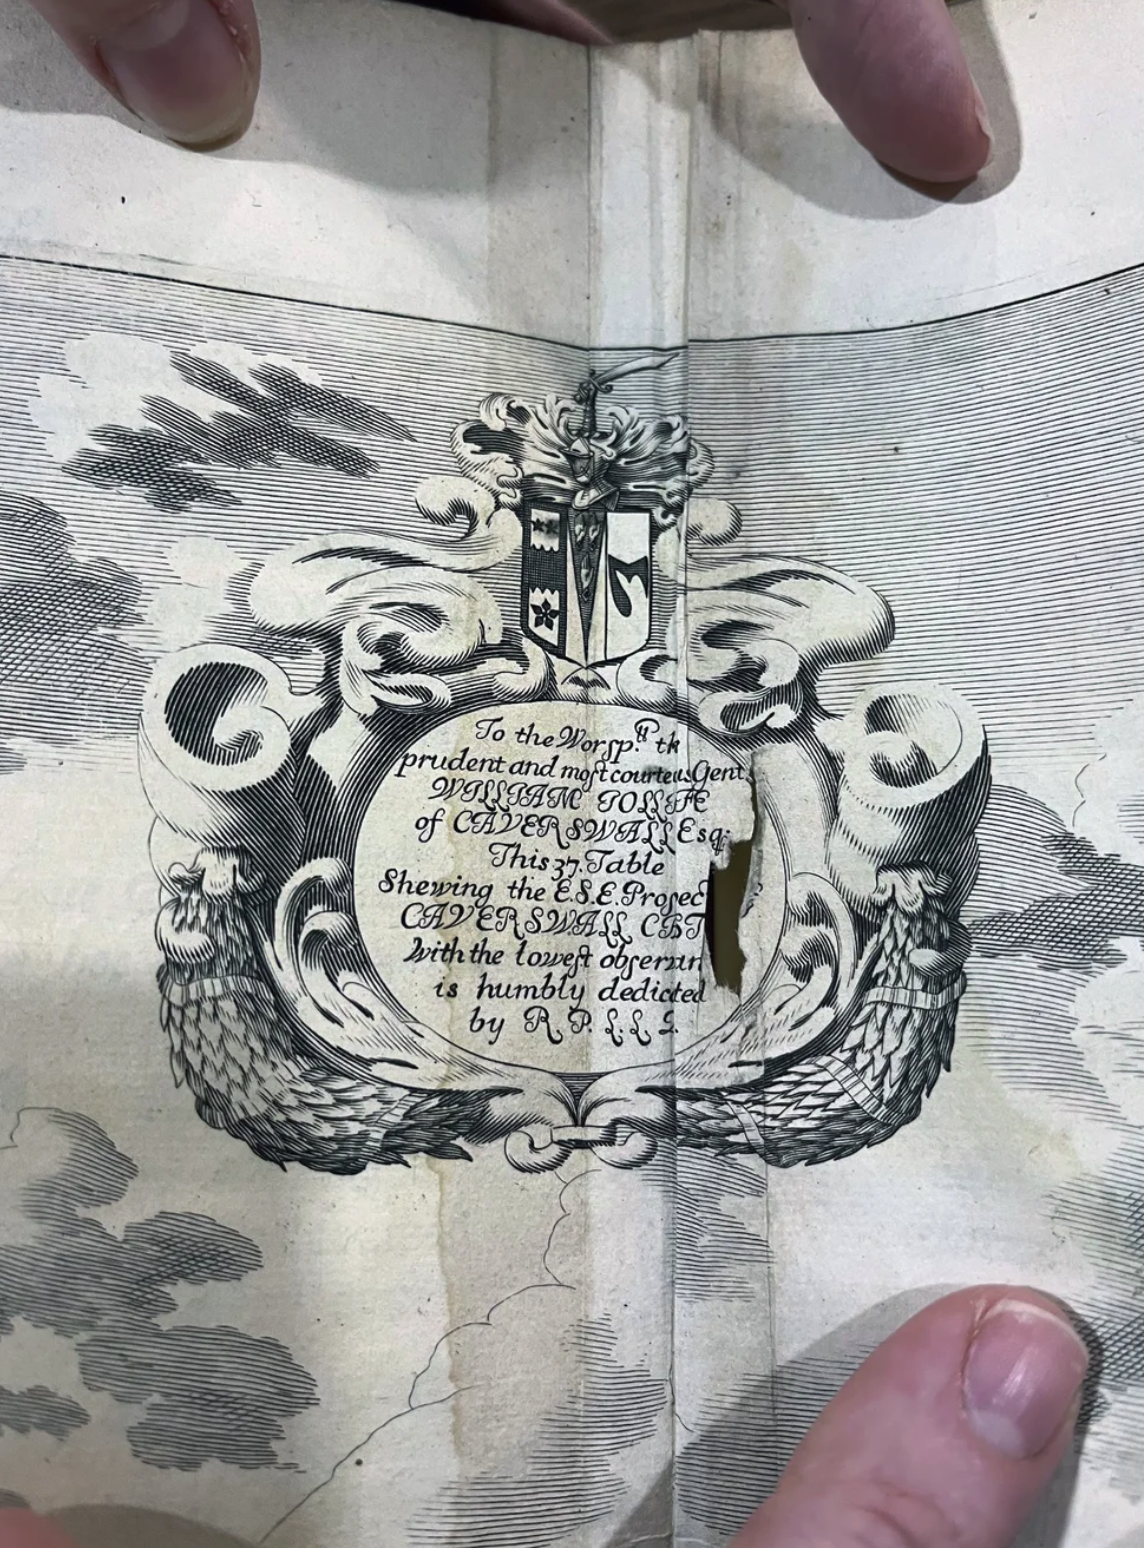 To the Worspll. th
prudent and most courteus Gent
WILLIAM IOLLIFE
of CAVERSWALL Esq:
This 37. Table
Shewing the E.S.E. Prospec
CAVERSWALL CAST
With the lowest observan
is humbly dedicted
by R. P. L.L.